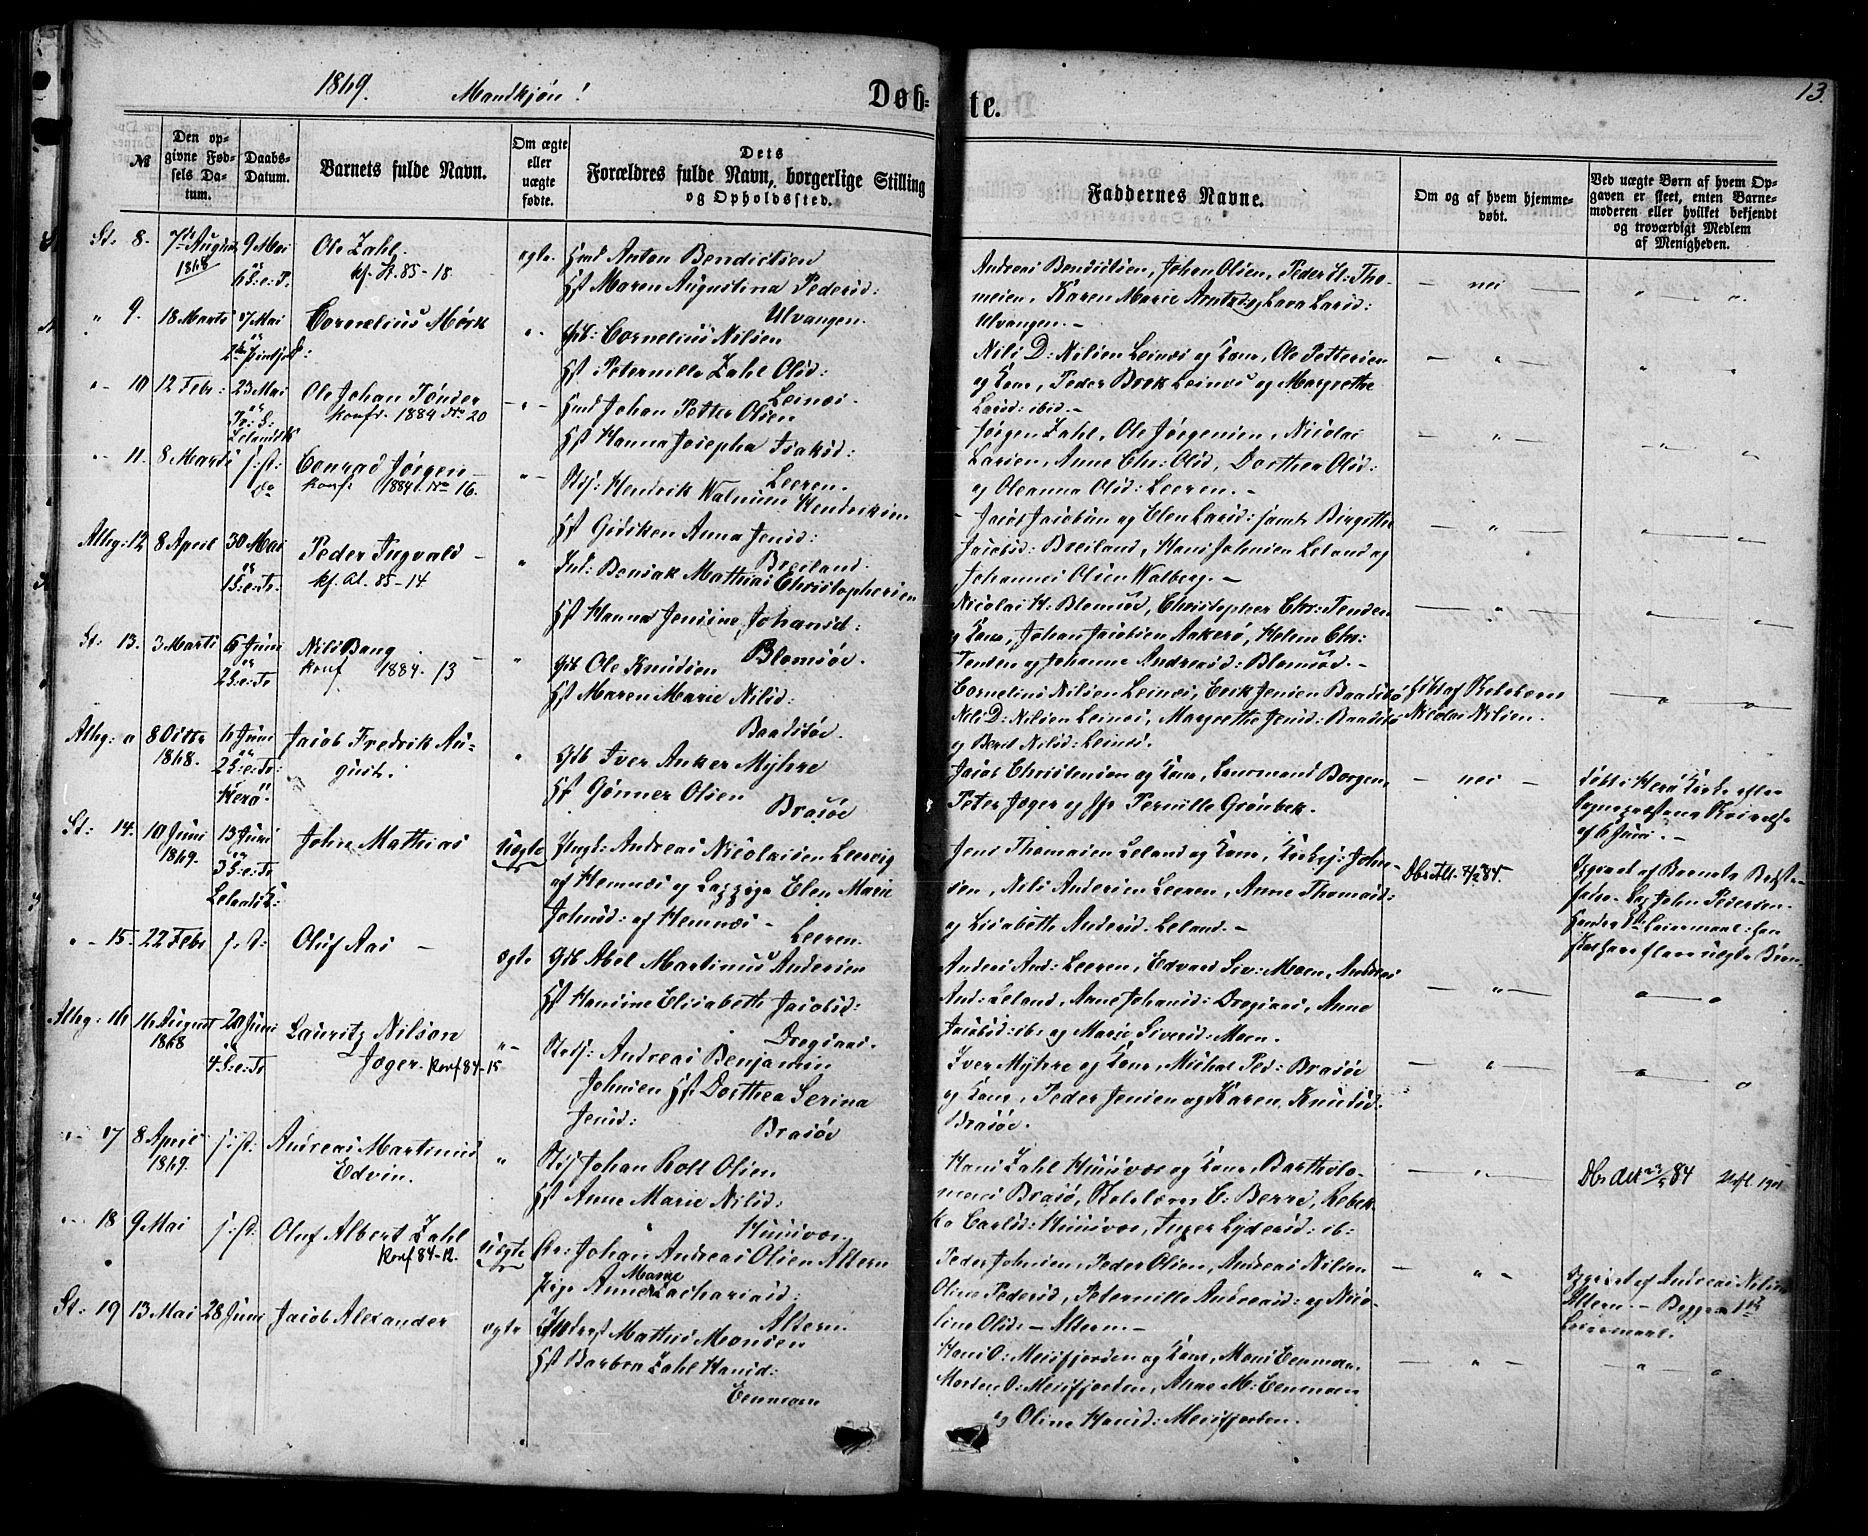 1869. Mandkjøn! Døb-te. 13.
№
Den opgivne Fødsels Datum.
Daabs-Datum.
Barnets fulde Navn.
Om ægte eller uægte fødte.
Dets Forældres fulde Navn, borgerlige Stilling og Opholdssted.
Faddernes Navne.
Om og af hvem hjemmedøbt.
Ved uægte Børn af hvem Opgaven er skeet, enten Barnemoderen eller hvilket bekjendt og troværdigt Medlem af Menigheden.
St: 8. 7de August 1868 9 Mai 6 S: e: P. Ole Zahl.
kf. St. 85-18
ægte. Hmd Anton Bendictsen
Hst Maren Augustina Pedersd:
Ulvangen.
Andreas Bendictsen, Johan Olsen, Peder St: Tho-
mesen, Karen Marie Arntsd: og Lava Larsd:
Ulvangen.-
- nei -
" 9. 18 Marts 17 Mai 2den Pintsed: Cornelius Mørk
Gdb: Cornelius Nilsen
Hst Peternilla Zahl Olsd:
Leines.
Nils D: Nilsen Leines og Kone, Ole Pettersen
og Kone, Peder Brok Leines og Margrethe
Larsd: ibid.-
" 10 12 Febr: 23 Mai Tr: S: Lelandsk Ole Johan Tønder
konf. 1884 No 20
Hmd Johan Petter Olsen
Hst Hanna Josepha Isaksd:
Leeren.
Jørgen Zahl, Ole Jørgensen, Nicolai
Larsen, Anne Chr: Olsd, Dorthea Olsd:
og Oleanna Olsd: Leeren.-
" 11. 8 Marts s: st: do Conrad Jørgen
konf. 1884 No 16.
Stsj: Hendrik Walnum Hendriksen
Hst Gidsken Anna Jensd:
Breiland.
Jacob Jacobsen og Elen Larsd: samt Birgitthe
Jacobsd: Breiland, Hans Johnsen Leland og
Johannes Olsen Walberg.-
Alhg: 12 8 April 30 Mai 1 S: e: Tr. Peder Ingvald -
kf. Al. 85-14
Ind: Bensak Mathias Christophersen
Hst Hanna Jensine Johansd:
Blomsøe.
Nicolai H. Blomsøe, Christopher Chr: Tenden
og Kone, Johan Jacobsen Aakerø, Helene Chr:
Tenden og Johanne Andreasd: Blomsøe.-
St: 13. 3 Marts 6 Juni 2 S: e: Tr Nils Bang
konf 1884. 13
Gdb Ole Knudsen
Hst Maren Marie Nilsd:
Baadsøe.
Cornelius Nilsen Leines, Erik Jensen Baadsøe
Nils D: Nilsen Leines, Margrethe Jensd: Baadsøe
og Berit Nilsd: Leines.
Døbt af Kirkesang
Nicolai Nilsen.
Alhg: a 8 Octbr 1868. 6 Juni 2 S: e: Tr: Herø. Jacob Fredrik Au-
gust.
Gdb Iver Anker Myhre
Hst Gønner Olsen
Brasøe
Jacob Christensen og Kone, Lensmand Borgen,
Peter Jæger og Hst Pernille Grønbek.
- nei -
Døbt i Herø Kirke efter
Sognepræstens
af 6 Juni.-
St: 14. 10 Juni 1869. 13 Juni 3 S: e: Tr Lelands K: John Mathias
Uægte
Ungk: Andreas Nicolaisen Leervig
af Hemnes og Lazziga Elen Marie
Johnsd: af Hemnes - Leeren.
Jens Thomesen Leland og Kone, Kirkesj: John-
sen, Nils Andersen Leeren, Anne Thomasd:
og Lisabeth Andersd: Leland.-
Dbs.Att. 7/2 84.
Opgivet af Barnets Bedste-
fader Lap John Pedersen.
Hendes 1ste Leiermaal: han
skal have flere uægte Børn.
" 15. 22 Febr s: st: Oluf Aas -
ægte Gdb Abel Martinus Andersen
Hst Hansine Elisabeth Jacobsd:
Dregsaas.
Anders And: Leeren, Edvard Siv: Moen, Andreas
And: Leland, Anne Johansd: Dregsaas, Anne
Jacobsd: ib: og Marie Siversd: Moen.
Alhg: 16 16 August 1868 20 Juni 4 S: e: Tr Lauritz Nilson
Jæger. Konf 84-15
Stsj: Andreas Benjamin
Johnsen Hst Dorthea Serina
Jensd: Brasøe
Iver Myhre og Kone, Michal Ped: Brasøe
og Kone, Peder Jensen og Karen Knudsd:
Brasøe.
" 17 8 April 1869. s: st: Andreas Martinus
Edvin.
Stsj Johan Roll Olsen
Hst Anne Marie Nilsd:
Huusvær
Hans Zahl Huusvær og Kone, Bartholo-
meus Brasø, E: Berre, Rebek-
ka Carlsd: Huusvær, Inger Lydersd: ib:
Dbs Att 23/5 84 Vift 1901
" 18 9 Mai s: st: Oluf Albert Zahl
Konf 84-12.
Uægte Gr: Johan Andreas Olsen Altern
Pige Anne Marie Zachariasd:
Altern.
Peder Johnsen, Peder Olsen, Andreas Nilsen
Oline Pedersd, Peternille Andreasd: og Nico-
line Olsd: - Altern -
Opgivet af Andreas Nilsen
Altern. - Begges 1ste
Leiermaal.
St: 19 13 Mai 28 Juni Jacob Alexander
ægte Mathis Monsen
Hst Barbra Zahl Hansd:
Eenmoen
Hans O: Meisfjorden og Kone, Mons Eenmoen
Morten O: Meisfjorden, Anne M: Eenmoen
og Oline Hansd: Meisfjorden.